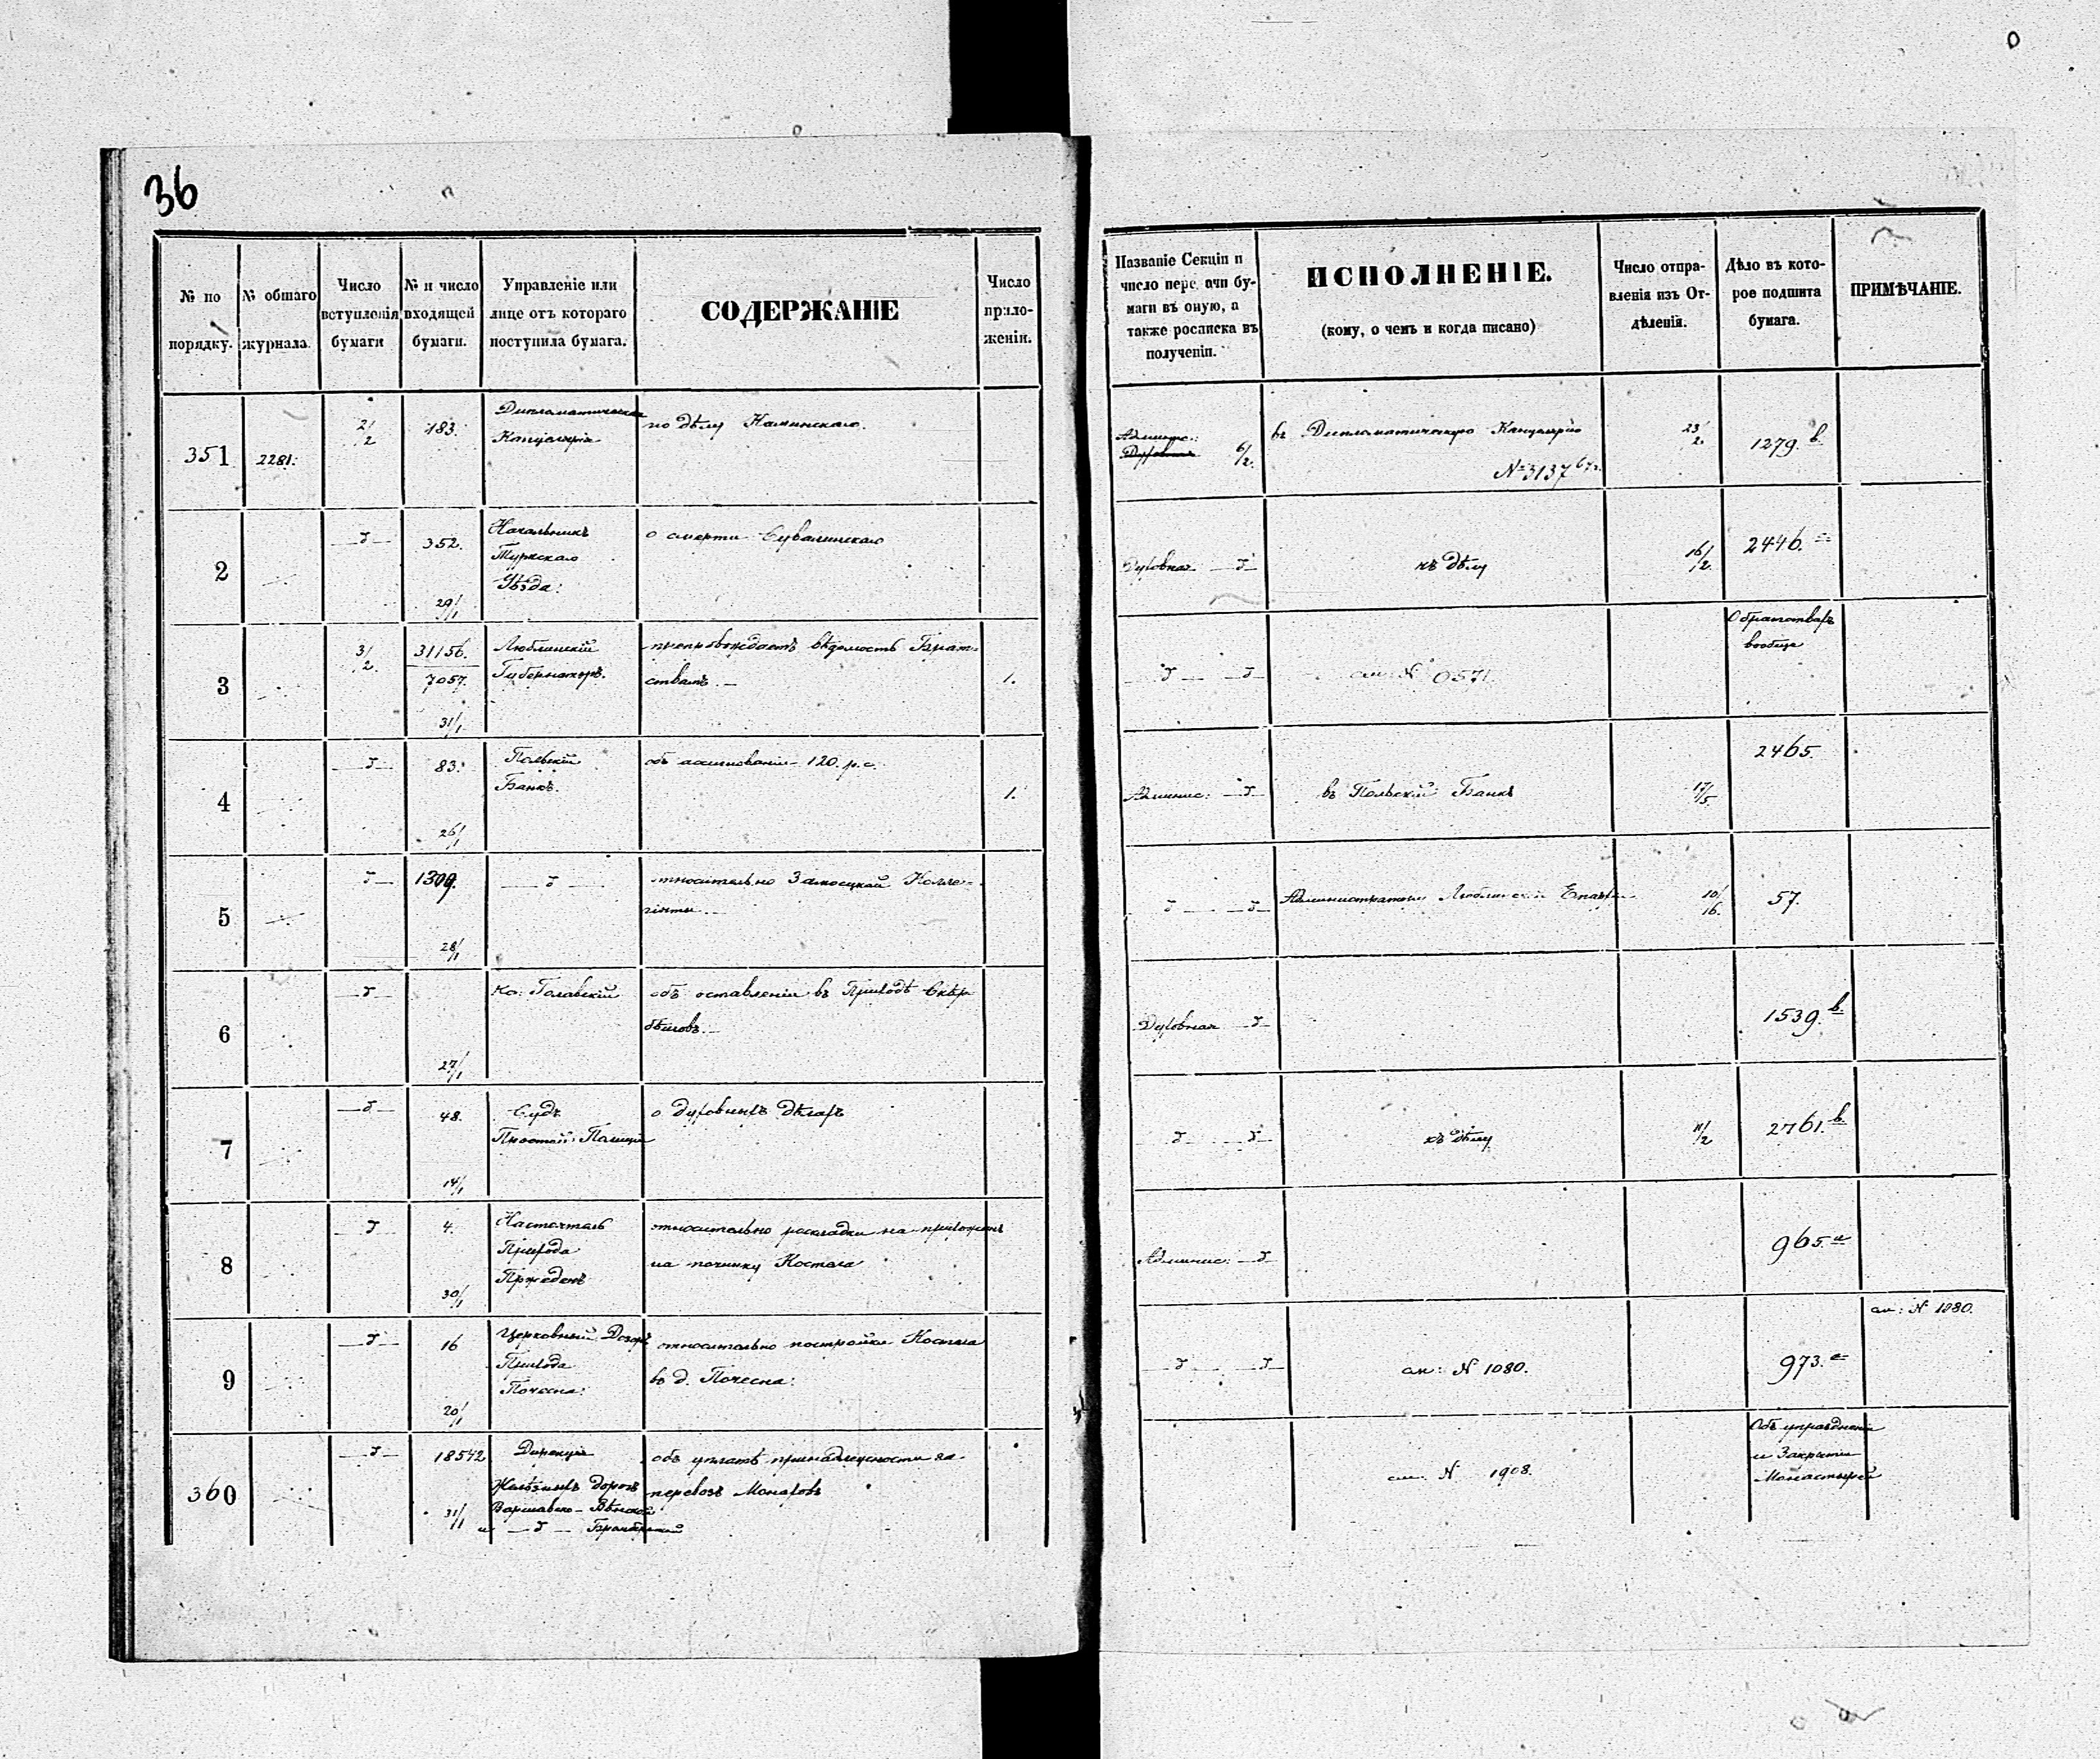 36
№ по порядку.
№ общаго журнала.
Число вступленія бумаги
№ и число входящей бумаги.
Управленіе или лице отъ котораго поступила бумага.
СОДЕРЖАНІЕ
Число приложеніи.
Названіе Секціи и число пере ачи бумаги въ оную, а также росписка въ полученіи.
ИСПОЛНЕНІЕ.
(кому, о чемъ и когда писано)
Число отправленія изъ Отдѣленія.
Дѣло въ которое подшита бумага.
ПРИМѢЧАНІЕ.
351
2281.
2/2
183.
Дипломатическая
Канцелярія
по дѣлу Каминскаго.
Админис:
6/2.
въ Дипломатическую Канцелярію
№ 3137
23/2.
1279. b.
2
352.
29/1
Начальникъ
Турекскаго
Уѣзда:
о смерти Сувалинскаго
Духовная
къ дѣлу
16/2.
2446.
3
3/2.
31156.
7057.
31/1
Люблинскій
Губернаторъ.
препровождаетъ вѣдомость Брат-
ствамъ.
1.
см: N 0571.
О братствахъ
вообще
4
83.
26/1
Польскій
Банкъ.
объ ассигнованіи 120. р. с.
1.
Админис:
въ Польскій Банкъ
17/5.
2465.
5
1309.
28/1
относительно Замосцкой Колле-
гіяты.
Администратору Люблинской Епархіи
10/16.
57.
6
27/1
Кс:
объ оставленіи въ Приходѣ Скер-
бѣшовъ.
Духовная
1539. b.
7
48.
14/1
Судъ
Простой Полиціи
о духовныхъ дѣлахъ
къ дѣлу
11/2
2761. b.
8
4.
30/1
Настоятель
Прихода
относительно раскладки на прихожанъ
на починку Костела
Админис:
965. a
9
16
20/1
Церковный Дозоръ
Прихода
Почесна:
относительно постройки Костела
въ д. Почесна:
см: N 1080.
973. a
см: N 1080.
360
18542
31/1
Дирекція
Желѣзныхъ дорогъ
Варшавско-Вѣнской
и
объ уплатѣ принадлежности за
перевозъ Монаховъ
см: N 1908.
Объ упраздненіи
и Закрытіи
Монастырей